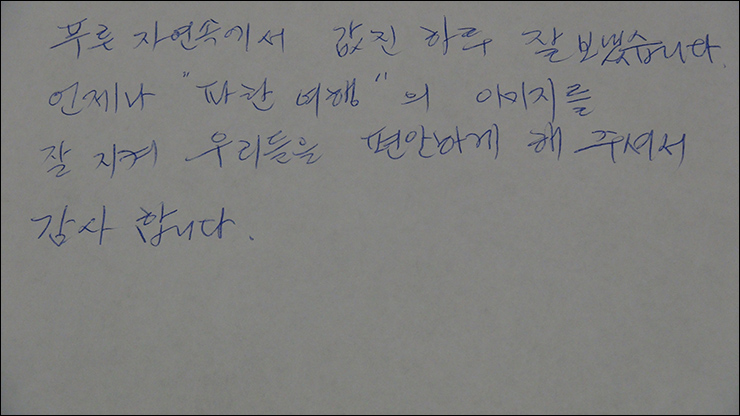 푸른 자연속에서 값진 하루 잘 보냈습니다.
언제나 "파란 여행"의 이미지를
잘 지켜 우리들을 편안하게 해 주셔서
감사 합니다.